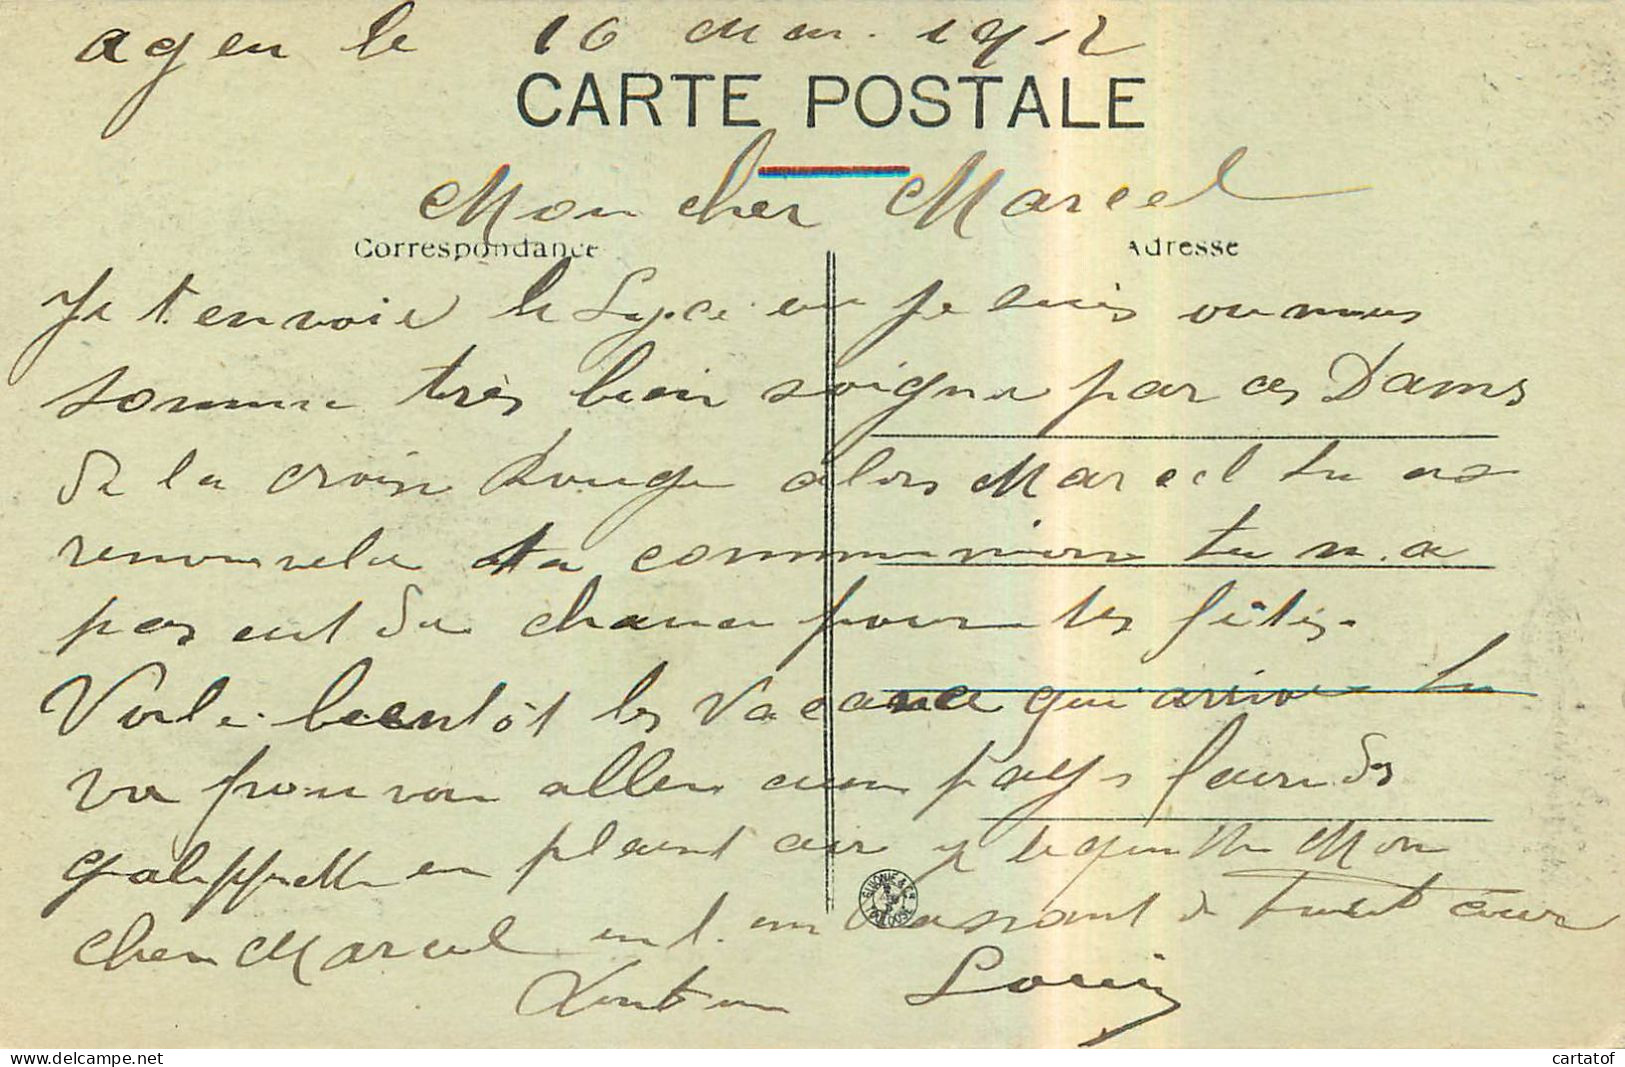 agen le 16 1912
CARTE POSTALE
Mon cher Marcel
Correspondance
Adresse
Je t envoie le Lycé ou je suis ou nous
somme très bien soigne par ces Dams
de la croix Rouge alors Marcel tu as
renouvele ta communion tu n a
pas eut de chance pour tes fêtes.
Voila bientôt les Vacance qui arrive tu
va pouvoir aller aux pays faire des
galippette en pleint air je te quitte Mon
cher Marcel en t. embrassant de tout cœur
Louis
cartatof